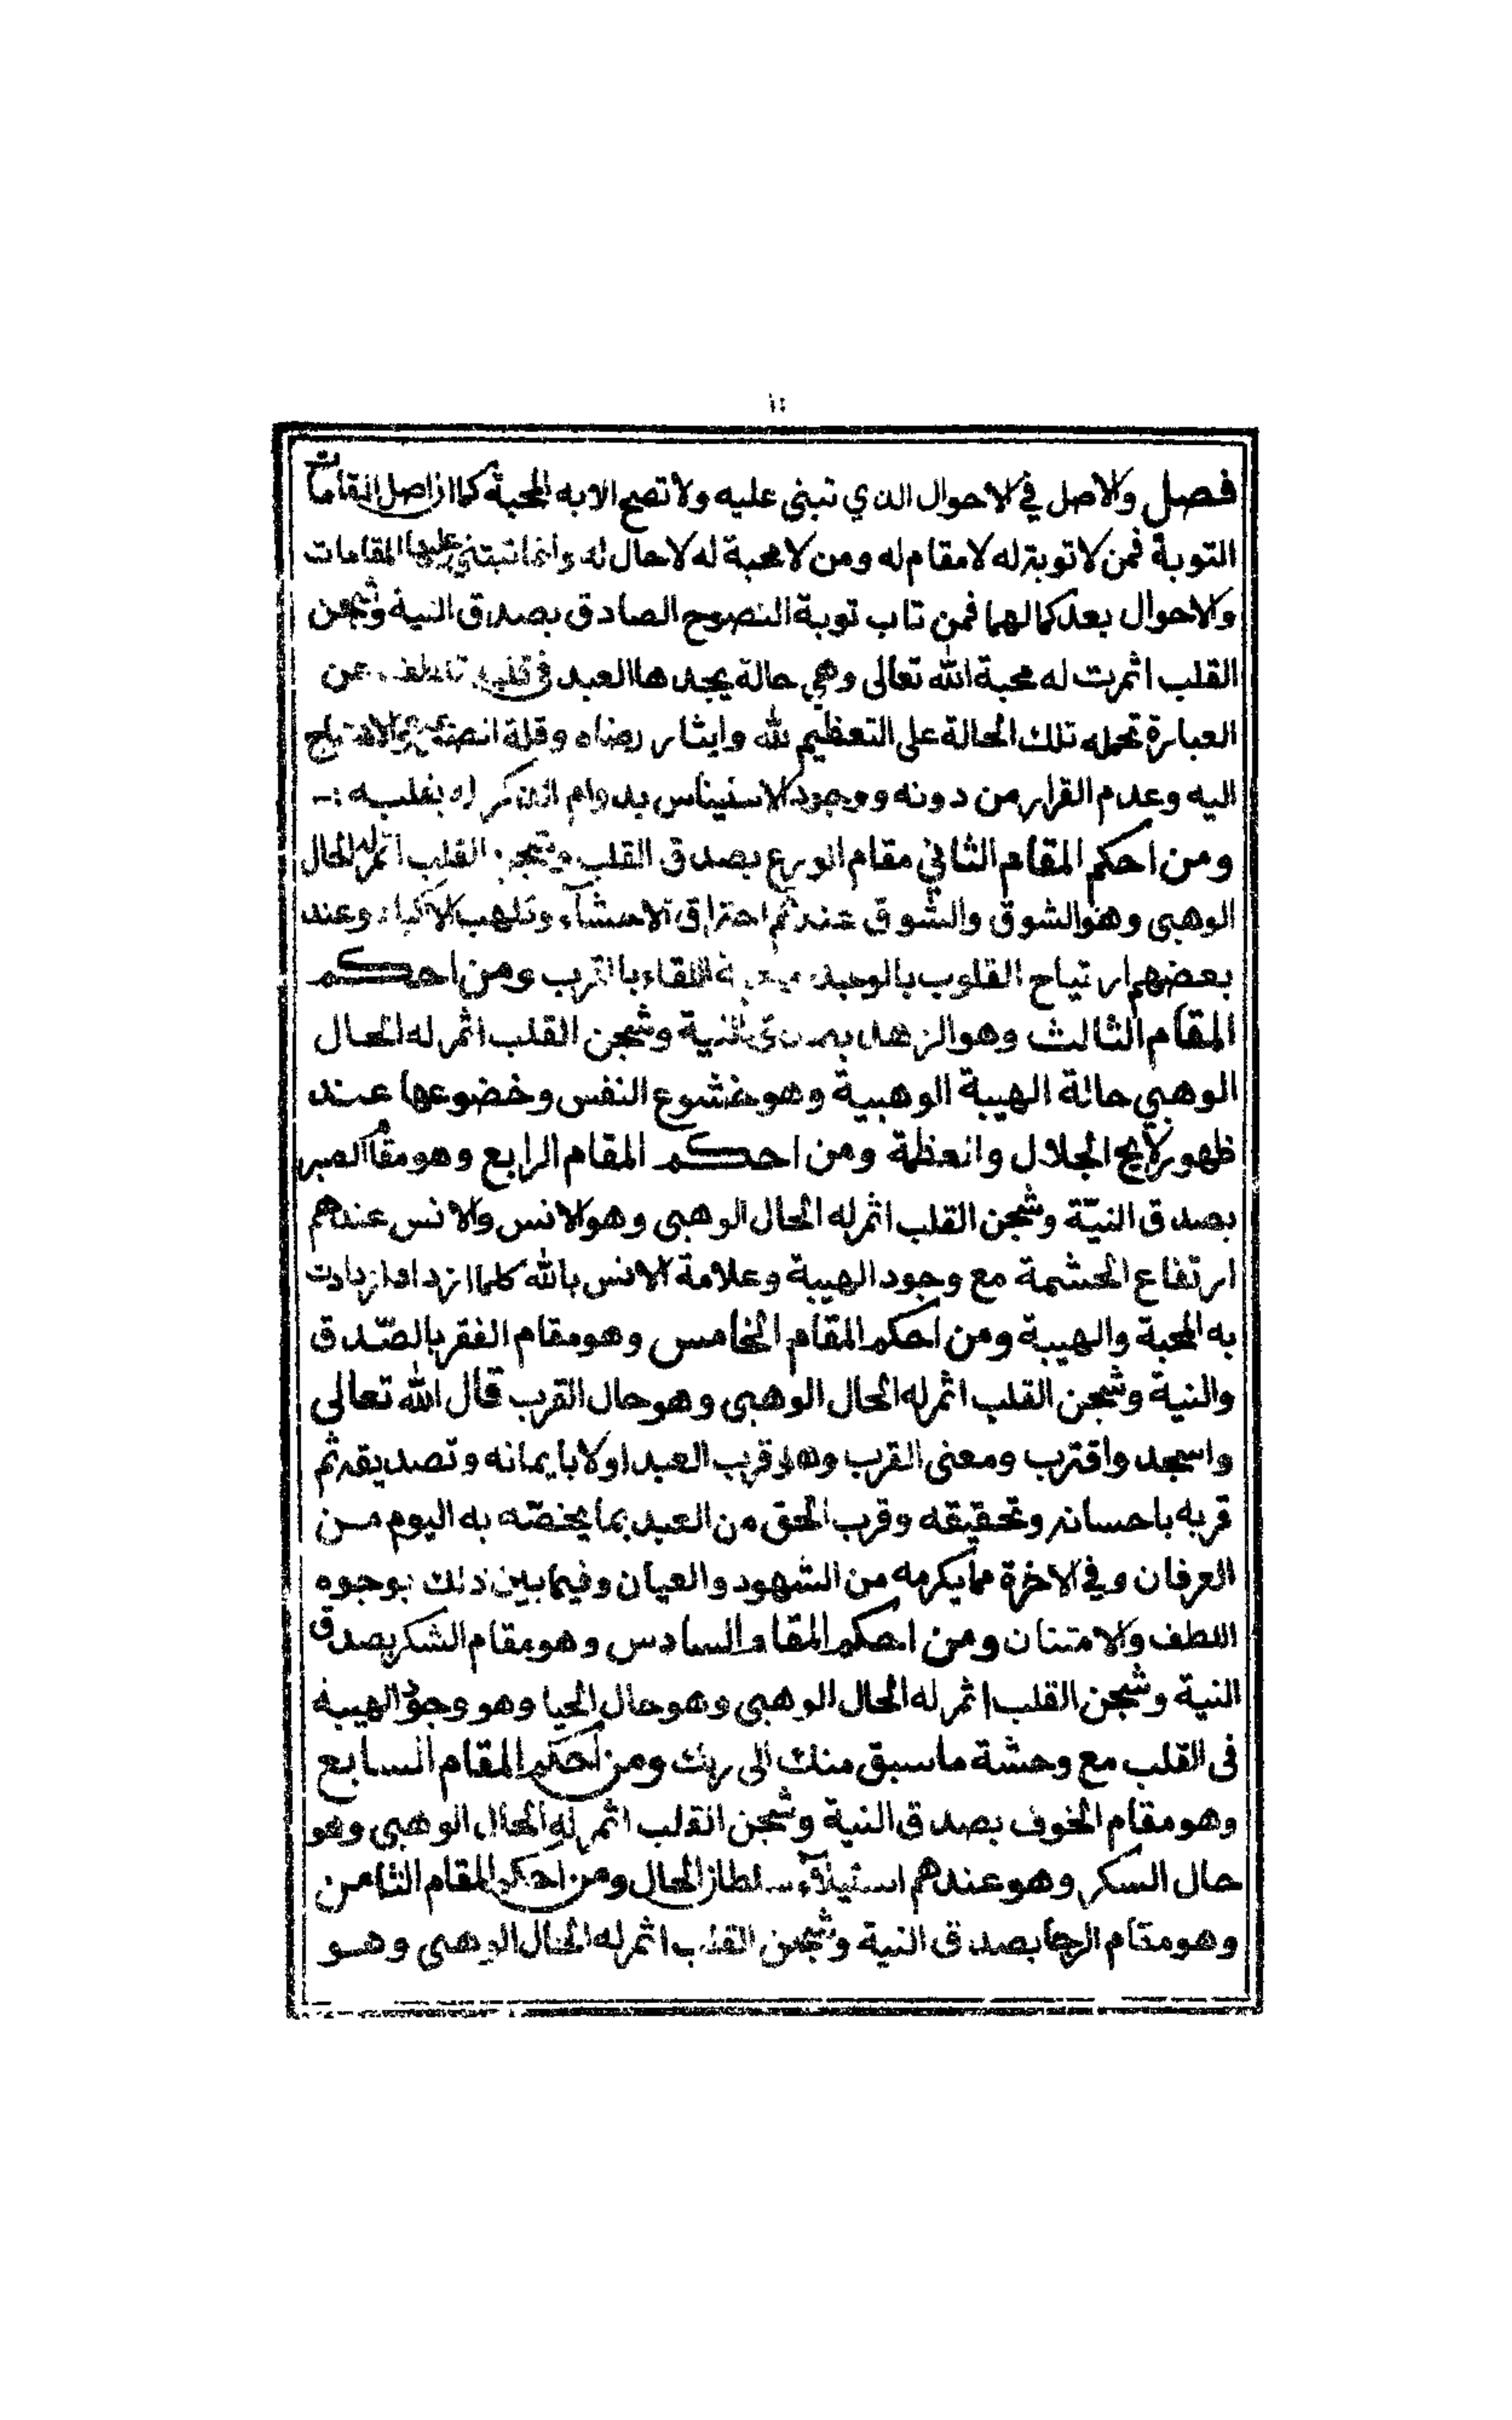 فصل والاصل في الاحوال الذي تبنى عليه ولا تصح الا به المحبة كما ان اصل المقامات
التوبة فمن لا توبة له لا مقام له ومن لا محبة له لا حال له وانما تبتنى عليها المقامات
والاحوال بعد كمالهما فمن تاب توبة النصوح الصادق بصدق النية وشجن
القلب اثمرت له محبة الله تعالى وهي حالة يجدها العبد في قلبه تلطف عن
العبارة تحمله تلك الحالة على التعظيم لله وايثار رضاه وقلة الصبر والاهتياج
اليه وعدم القرار من دونه ووجود الاستيناس بدوام الذكر له بقلبه :-
ومن احكم المقام الثاني مقام الورع بصدق القلب وشجن القلب اثمر له الحال
الوهبي وهو الشوق والشوق عندهم احتراق الاحشآء وتلهب الاكباد وعند
بعضهم ارتياح القلوب بالوجد اللقاء بالقرب ومن احكم
المقام الثالث وهو الزهد بصدق النية وشجن القلب اثمر له الحال
الوهبي حالة الهيبة الوهبية وهو خشوع النفس وخضوعها عند
ظهور لايح الجلال والعظمة ومن احكم المقام الرابع وهو مقام الصبر
بصدق النيّة وشجن القلب اثمر له الحال الوهبي وهو الانس والانس عندهم
ارتفاع الحشمة مع وجود الهيبة وعلامة الانس بالله كلما ازداد ازدادت
به المحبة والهيبة ومن احكم المقام الخامس وهو مقام الفقر بالصّدق
والنية وشجن القلب اثمر له الحال الوهبي وهو حال القرب قال الله تعالى
واسجد واقترب ومعنى القرب وهو قرب العبد اولا بايمانه وتصديقه ثم
قربه باحسانه وتحقيقه وقرب الحق من العبد بما يخصّه به اليوم من
العرفان وفي الاخرة مما يكرمه من الشهود والعيان وفيما بين ذلك بوجوه
اللطف والامتنان ومن احكم المقام السادس وهو مقام الشكر بصدق
النية وشجن القلب اثمر له الحال الوهبي وهو حال الحيا وهو وجود الهيبة
فى القلب مع وحشة ما سبق منك الى ربك ومن احكم المقام السابع
وهو مقام الخوف بصدق النية وشجن القلب اثمر له الحال الوهبي وهو
حال السكر وهو عندهم استيلآء سلطان الحال ومن احكم المقام الثامن
وهو مقام الرجا بصدق النية وشجن القلب اثمر له الحال الوهبي وهو